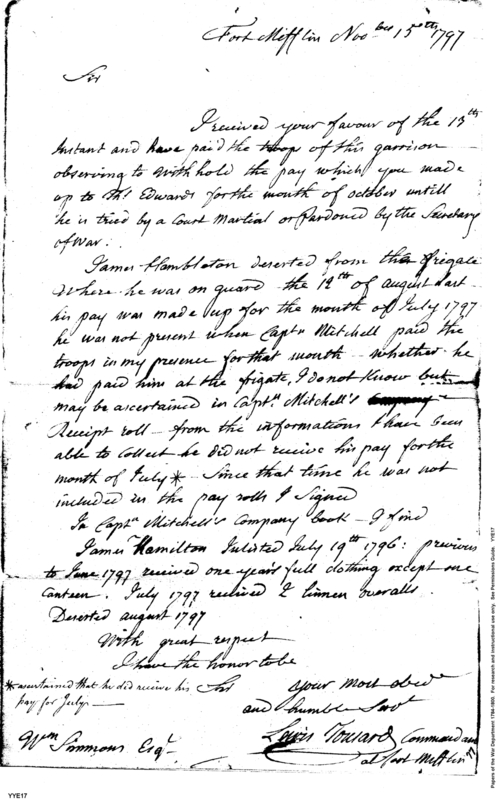 Fort Mifflin Novber 15th 1797
Sir
I received your favour of the 13th
Instant and have paid the troop of this garrison
observing to withhold the pay which you made
up to Ths Edwards for the month of october untill
he is tried by a Court Martial or Pardoned by the Secretary
of War:
James Hambleton deserted from the frigate
where he was on guard the 12th of august last
his pay was made up for the month of July 1797
he was not present when Captn Mitchell paid the
troops in my presence for that month – whether he
had paid him at the frigate, I do not Know but
may be ascertained in Captn Mitchell's
Receipt roll – from the informations I have been
able to collect he did not receive his pay for the
month of July * – Since that time he was not
included in the pay rolls I Signed
In Captn Mitchell's Company book – I find
James Hamilton Inlisted July 19th 1796: previous
to June 1797 received one year's full clothing except one
Canteen. July 1797 received 2 linnen overalls
Deserted august 1797
With great respect
I have the honor to be
* ascertained that he did receive his
pay for July –
Sir your most obedt
and humble Servt
Lewis Tousard Commandant
at fort Mifflin
Wm Simmons Esqr
YYE17
Papers of the War Department 1784-1800. For research and instructional use only. See Permissions Guide. YYE17